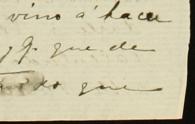 vino á hacer
y q. que de
do que